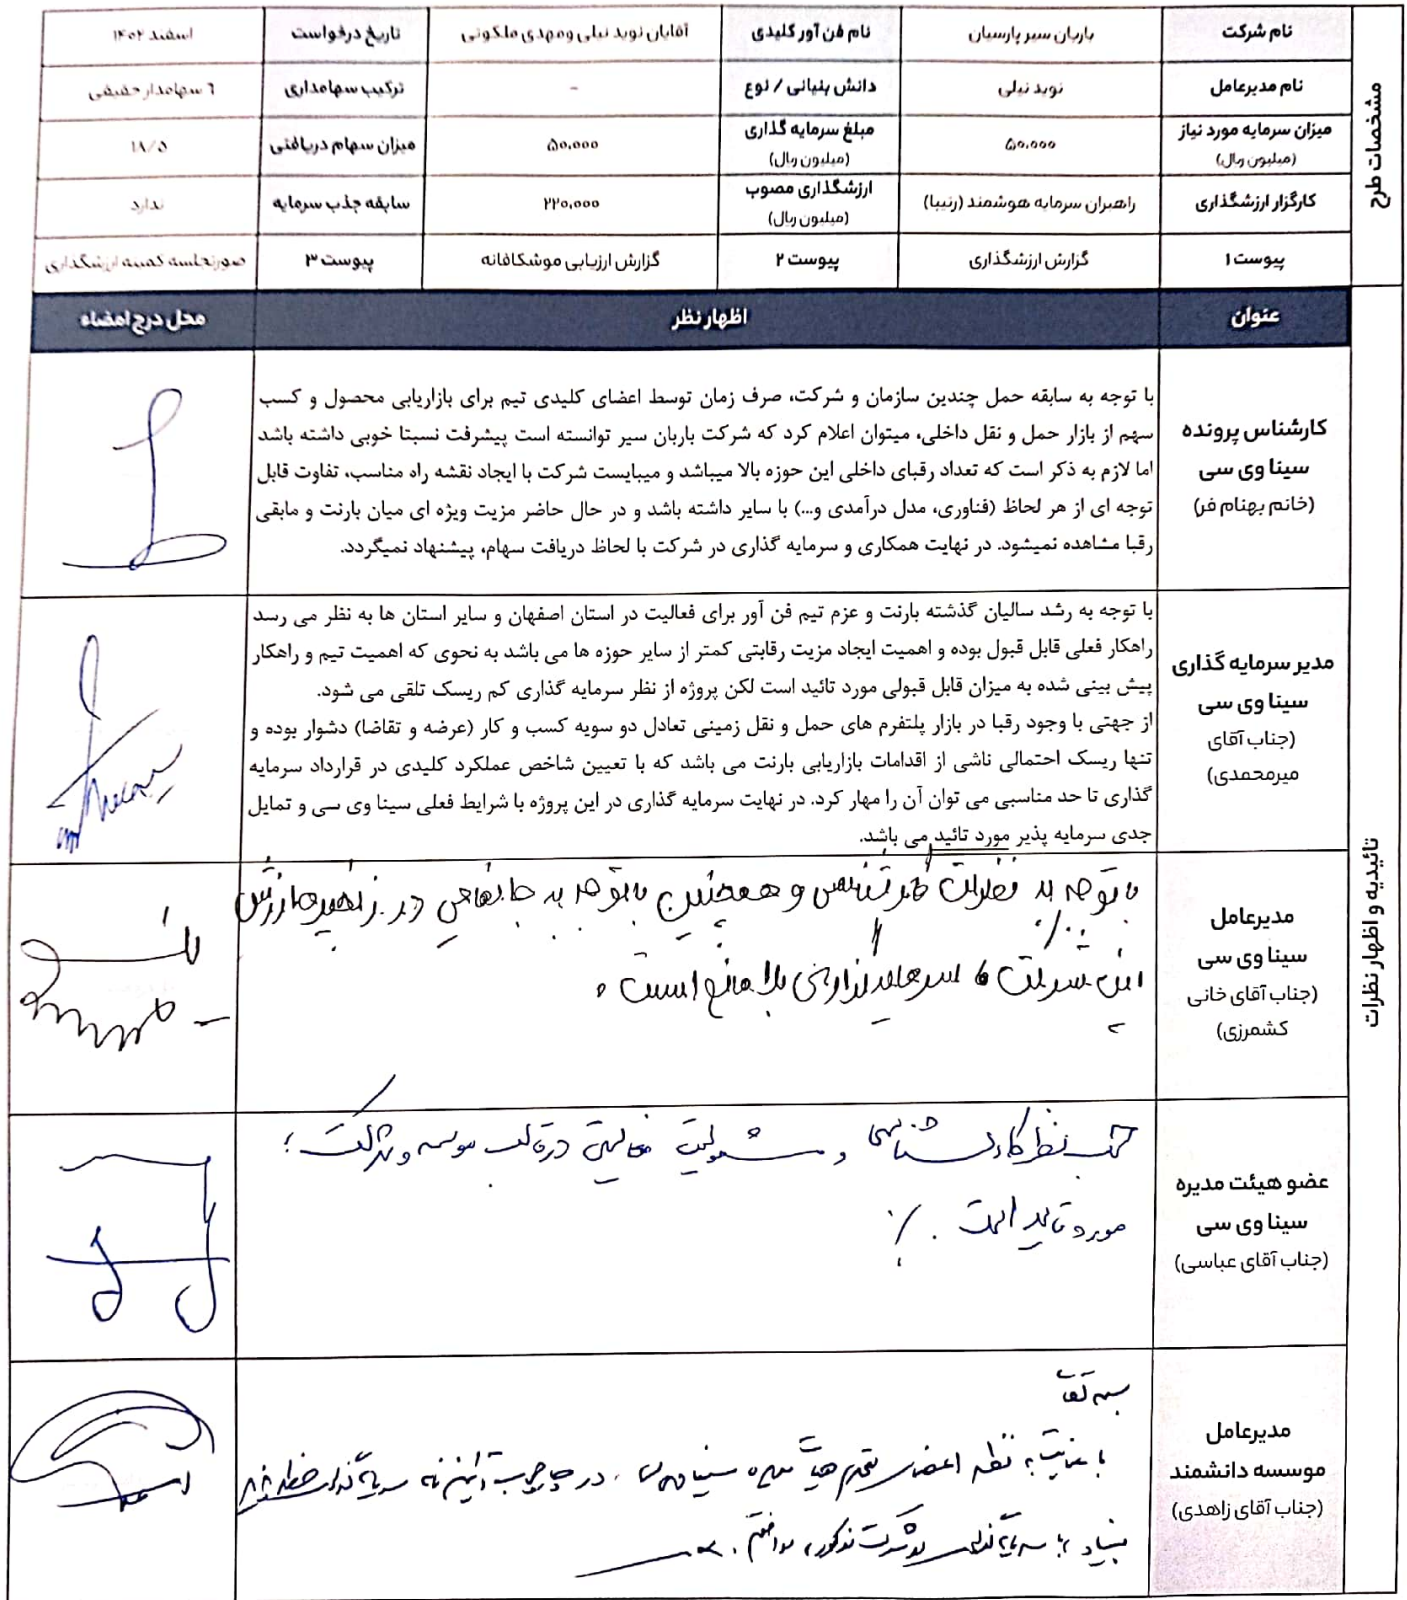 مشخصات طرح
نام شرکت باربان سیر پارسیان نام فن آور کلیدی آقایان نوید نیلی ومهدی ملکوتی تاریخ درخواست اسفند ۱۴۰۲
نام مدیرعامل نوید نیلی دانش بنیانی / نوع - ترکیب سهامداری ٦ سهامدار حقیقی
میزان سرمایه مورد نیاز (میلیون ریال) ۵۰,۰۰۰ مبلغ سرمایه گذاری (میلیون ریال) ۵۰,۰۰۰ میزان سهام دریافتی ۱۸/۵
کارگزار ارزشگذاری راهبران سرمایه هوشمند (رنیبا) ارزشگذاری مصوب (میلیون ریال) ۲۲۰,۰۰۰ سابقه جذب سرمایه ندارد
پیوست ۱ گزارش ارزشگذاری پیوست ۲ گزارش ارزیابی موشکافانه پیوست ۳ صورتجلسه کمیته ارزشگذاری
عنوان اظهار نظر محل درج امضاء
تائیدیه و اظهار نظرات
کارشناس پرونده
سینا وی سی
(خانم بهنام فر)
با توجه به سابقه حمل چندین سازمان و شرکت، صرف زمان توسط اعضای کلیدی تیم برای بازاریابی محصول و کسب
سهم از بازار حمل و نقل داخلی، میتوان اعلام کرد که شرکت باربان سیر توانسته است پیشرفت نسبتا خوبی داشته باشد
اما لازم به ذکر است که تعداد رقبای داخلی این حوزه بالا میباشد و میبایست شرکت با ایجاد نقشه راه مناسب، تفاوت قابل
توجه ای از هر لحاظ (فناوری، مدل درآمدی و...) با سایر داشته باشد و در حال حاضر مزیت ویژه ای میان بارنت و مابقی
رقبا مشاهده نمیشود. در نهایت همکاری و سرمایه گذاری در شرکت با لحاظ دریافت سهام، پیشنهاد نمیگردد.
مدیر سرمایه گذاری
سینا وی سی
(جناب آقای
میرمحمدی)
با توجه به رشد سالیان گذشته بارنت و عزم تیم فن آور برای فعالیت در استان اصفهان و سایر استان ها به نظر می رسد
راهکار فعلی قابل قبول بوده و اهمیت ایجاد مزیت رقابتی کمتر از سایر حوزه ها می باشد به نحوی که اهمیت تیم و راهکار
پیش بینی شده به میزان قابل قبولی مورد تائید است لکن پروژه از نظر سرمایه گذاری کم ریسک تلقی می شود.
از جهتی با وجود رقبا در بازار پلتفرم های حمل و نقل زمینی تعادل دو سویه کسب و کار (عرضه و تقاضا) دشوار بوده و
تنها ریسک احتمالی ناشی از اقدامات بازاریابی بارنت می باشد که با تعیین شاخص عملکرد کلیدی در قرارداد سرمایه
گذاری تا حد مناسبی می توان آن را مهار کرد. در نهایت سرمایه گذاری در این پروژه با شرایط فعلی سینا وی سی و تمایل
جدی سرمایه پذیر مورد تائید می باشد.
مدیرعامل
سینا وی سی
(جناب آقای خانی
کشمرزی)
با توجه به نظرات کارشناسی و همچنین با توجه به جانمایی در زنجیره ارزش
این شرکت، سرمایه گذاری بلا مانع است.
عضو هیئت مدیره
سینا وی سی
(جناب آقای عباسی)
حسب نظر کارشناسی و مشمولیت فعالیتی در قالب موسسه و شرکت؛
مورد تایید است.
مدیرعامل
موسسه دانشمند
(جناب آقای زاهدی)
بسمه تعالی
با عنایت به نظر اعضای محترم هیات مدیره سینا وی سی، در چارچوب آیین نامه سرمایه گذاری خطرپذیر
بنیاد، با سرمایه گذاری در شرکت مذکور، موافقم.